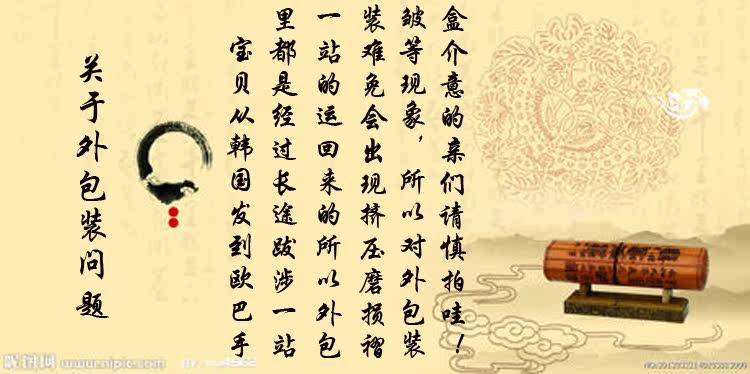 关于外包装问题
宝贝从韩国发到欧巴手
里都是经过长途跋涉一站
一站的运回来的所以外包
装难免会出现挤压磨损褶
皱等现象，所以对外包装
盒介意的亲们请慎拍哇！
昵图网 www.nipic.com